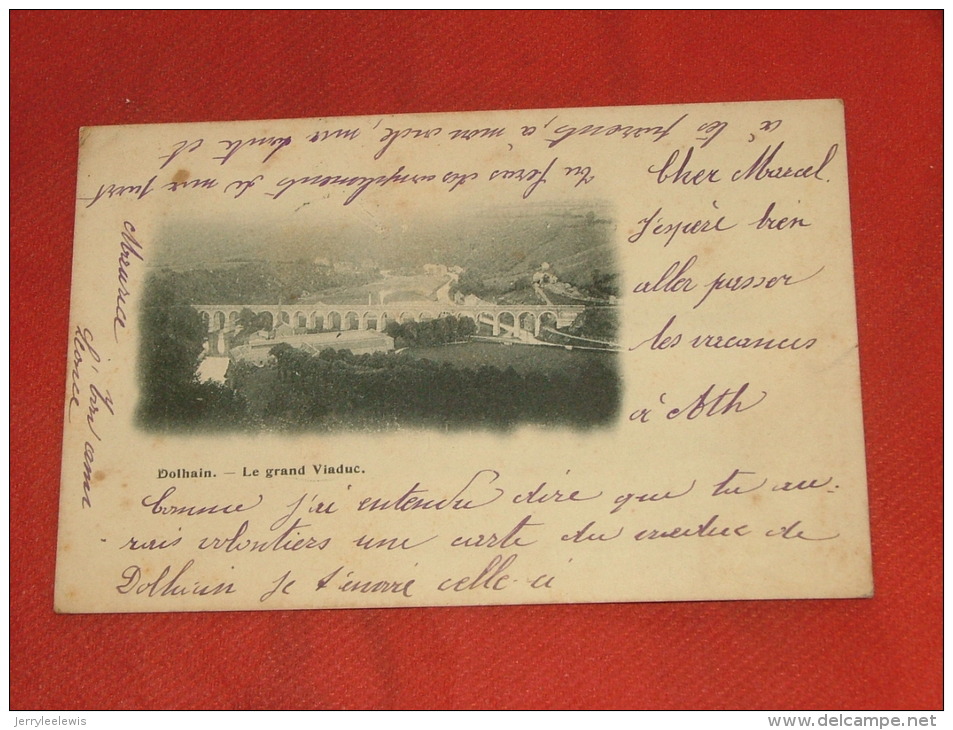 Cher Marcel.
J'espère bien
aller passer
les vacances
à Ath
Dolhain. — Le grand Viaduc.
Comme j'ai entendu dire que tu au-
rais volontiers une carte du viaduc de
Dolhain je t'envoie celle-ci
Tu feras des compliments de ma part
à tes parents, a mon oncle, ma tante et
Maurice
ton ami
Léonce
jerryleelewis
www.delcampe.net